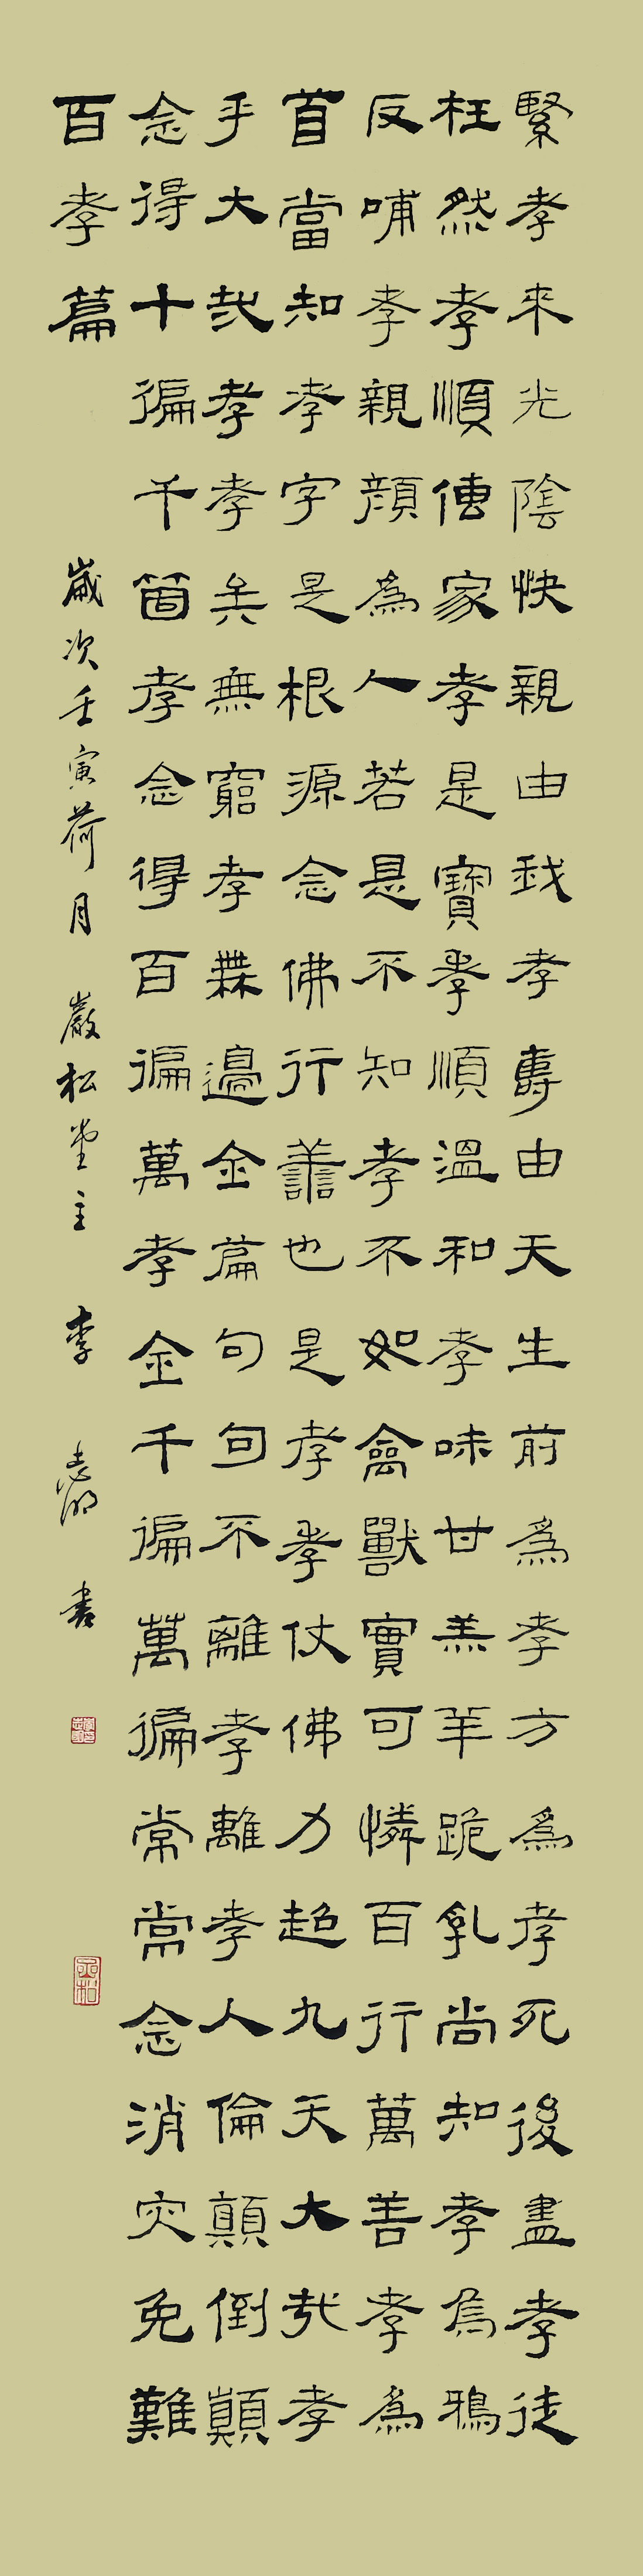 緊孝來光陰快親由我孝壽由天生前為孝方為孝死後盡孝徒
枉然孝順傳家孝是寶孝順溫和孝味甘羔羊跪乳尚知孝烏鴉
反哺孝親顏為人若是不知孝不如禽獸實可憐百行萬善孝為
首當知孝字是根源念佛行善也是孝孝仗佛力超九天大哉孝
乎大哉孝孝矣無窮孝無邊金篇句句不離孝離孝人倫顛倒顛
念得十徧千箇孝念得百徧萬孝金千徧萬徧常常念消災免難
百孝篇
歲次壬寅荷月 巖松堂主 李 書